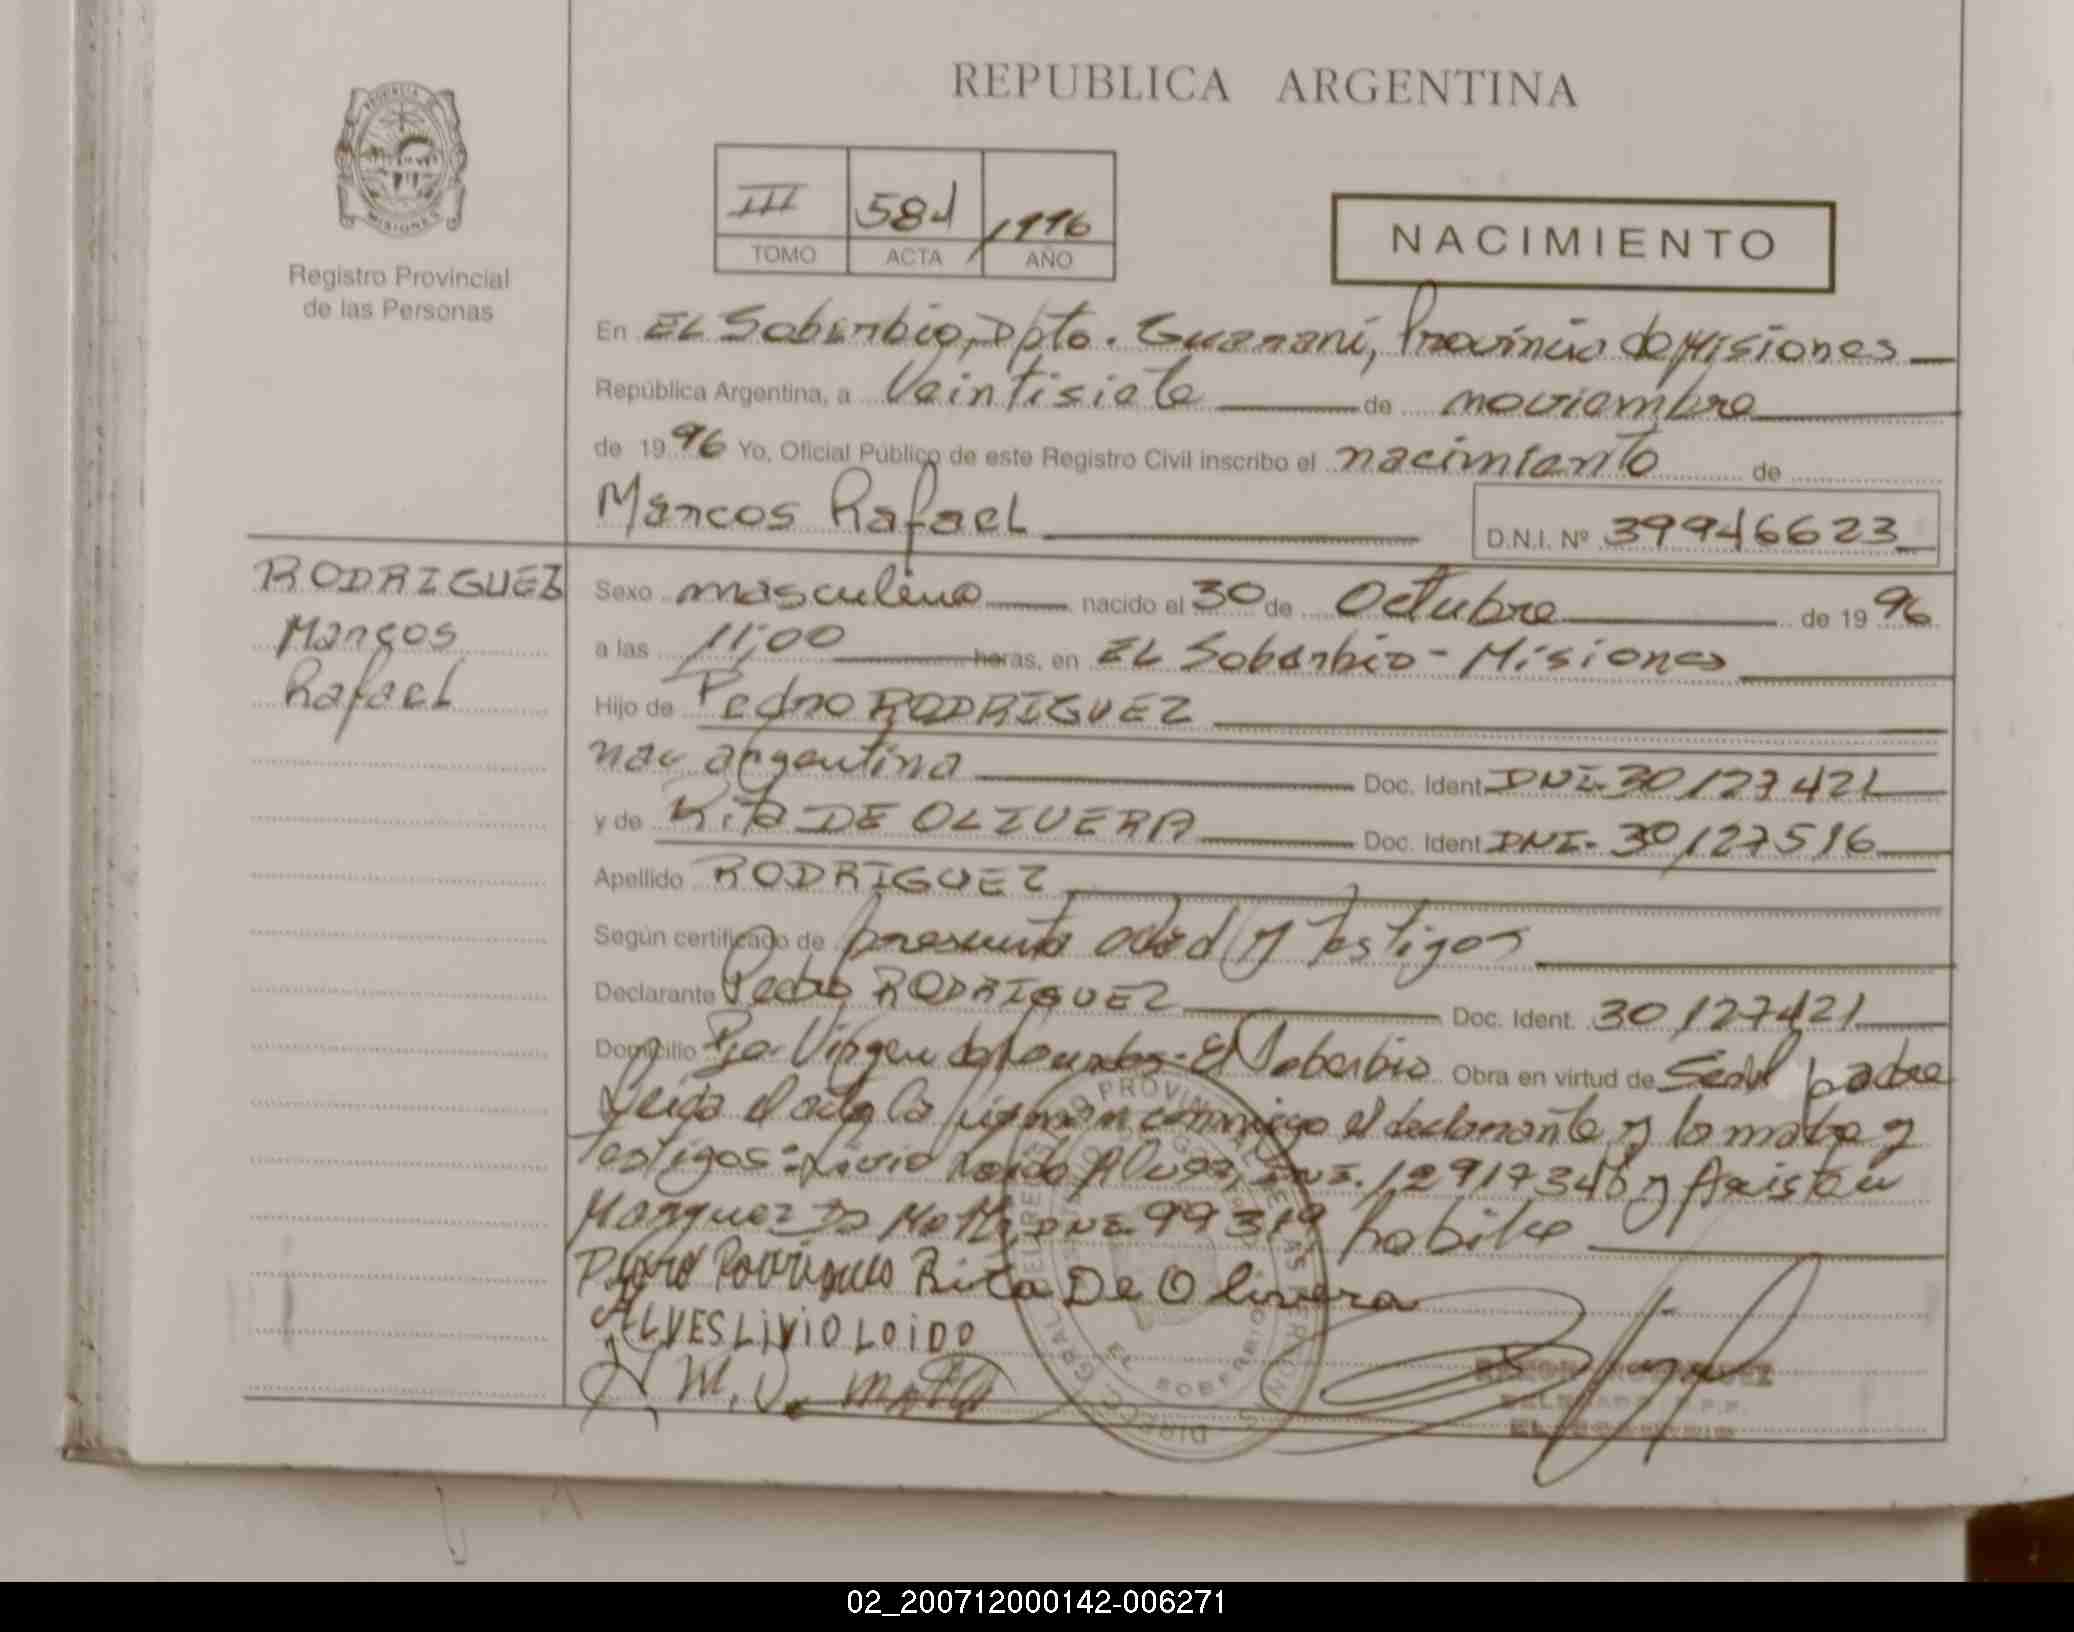 REPUBLICA ARGENTINA
PROVINCIA DE
MISIONES
Registro Provincial
de las Personas
III 581 1996
TOMO ACTA AÑO
NACIMIENTO
En EL Soberbio, Dpto. Guarani, Provincia de Misiones
República Argentina, a Veintisiete de noviembre
de 1996 Yo, Oficial Público de este Registro Civil inscribo el nacimiento de
Marcos Rafael
D.N.I. Nº 39946623
RODRIGUEZ
Marcos
Rafael
Sexo masculino nacido el 30 de Octubre de 1996
a las 11,00 horas, en EL Soberbio - Misiones
Hijo de Pedro RODRIGUEZ
nac argentina Doc. Ident DNI-30127421
y de Rita DE OLIVERA Doc. Ident DNI- 30127516
Apellido RODRIGUEZ
Según certificado de presunta edad y Testigos
Declarante Pedro RODRIGUEZ Doc. Ident. 30127421
Domicilio Pje Virgen de Lourdes - El Soberbio Obra en virtud de Ser el padre
Leida el acta la firman conmigo el declarante y la madre y
testigos: Livio Loido Alves, DNI. 12917346 y
Marquez Da Motta, DNI habiles
Pedro Rodriguez Rita De Olivera
ALVES LIVIO LOIDO
EL SOBERBIO
02_200712000142-006271